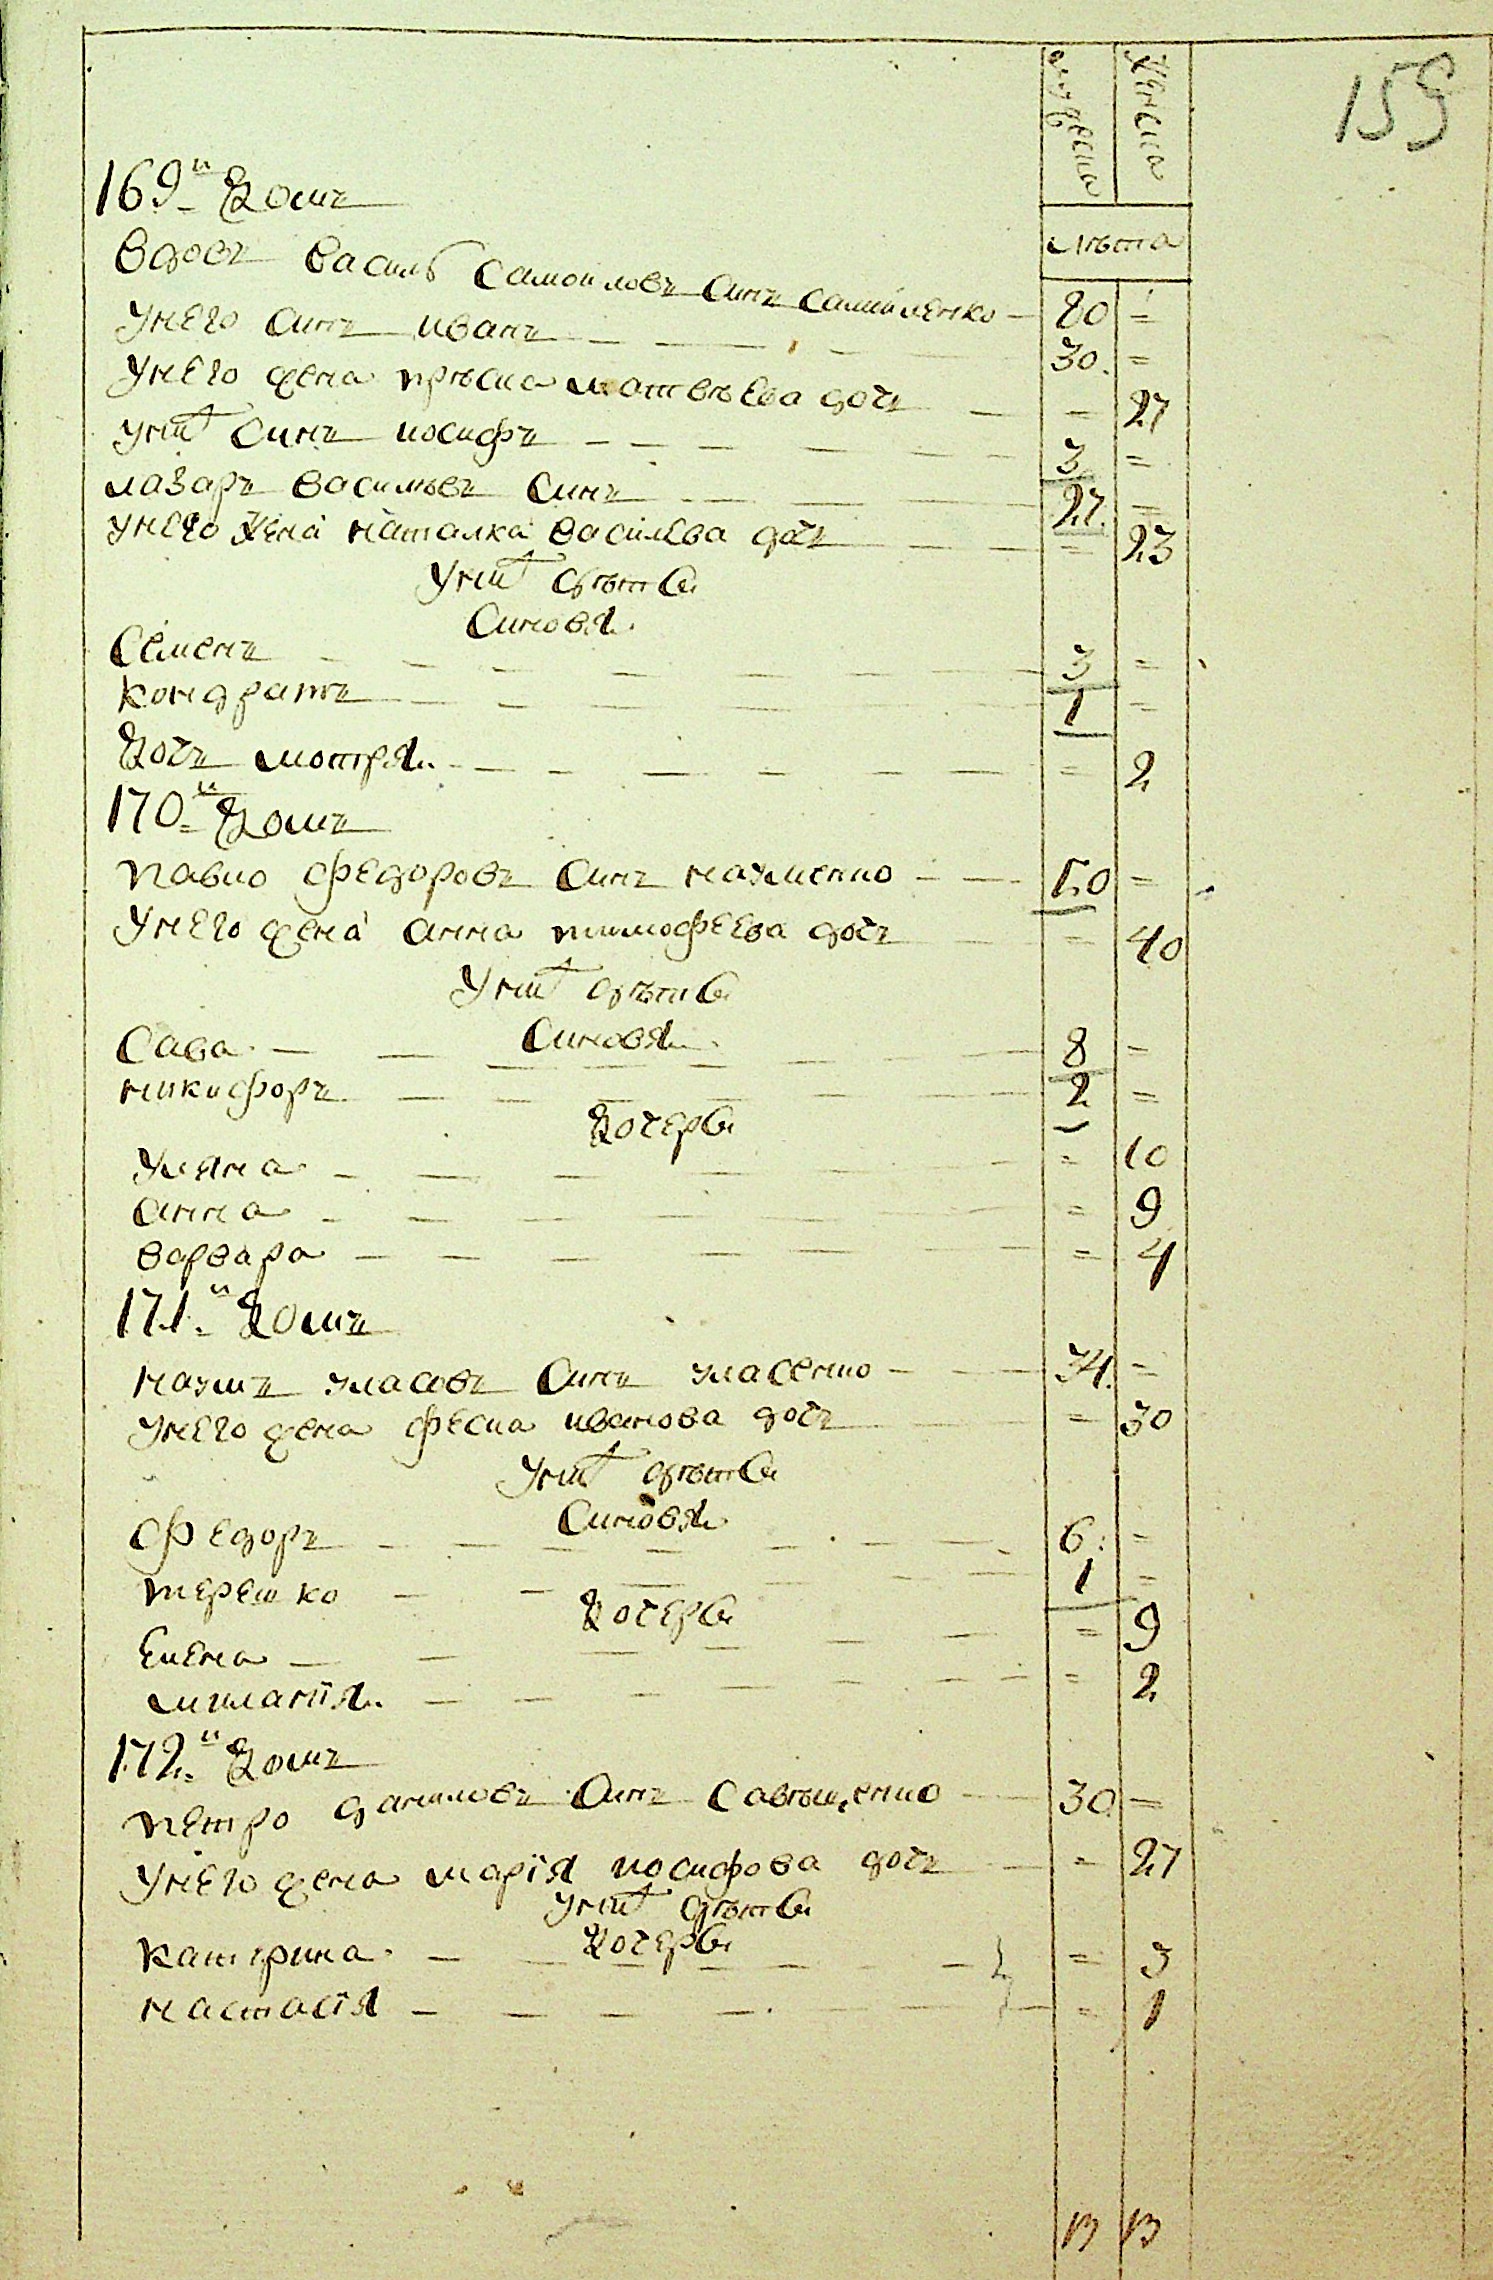 159
мужеска женска
лѣта
169й Домъ
Вдовъ василь Самоиловъ Синъ Самойленко — 80 =
Унего Синъ иванъ — 30. =
Унего жена прѣска матвѣева дочъ — = 27
Уних Синъ иосифъ — 3 =
лазаръ васильевъ Синъ — 27. =
Унего жена наталка василева дочъ — = 23
Уних дѣти
Синовя
Семенъ — 3 =
кондратъ — 1 =
Дочъ мотря — = 2
170й Домъ
павло федоровъ Синъ науменко — 50 =
Унего жена анна тимофеева дочъ — = 40
Уних дѣти
Синовя
Сава — 8 =
никифоръ — 2 =
Дочери
Уляна — = 10
анна — = 9
варвара — = 4
171й Домъ
наумъ уласовъ Синъ уласенко — 34. =
Унего жена феска иванова дочъ — = 30
Уних дѣти
Синовя
федоръ — 6. =
терешко — 1 =
Дочери
Елена — = 9
миланія — = 2
172й Домъ
петро даниловъ Синъ Савощенко — 30 =
Унего жена марія иосифова дочъ — = 27
Уних дѣти
Дочери
катерина — = 3
настасія — = 1
13 13